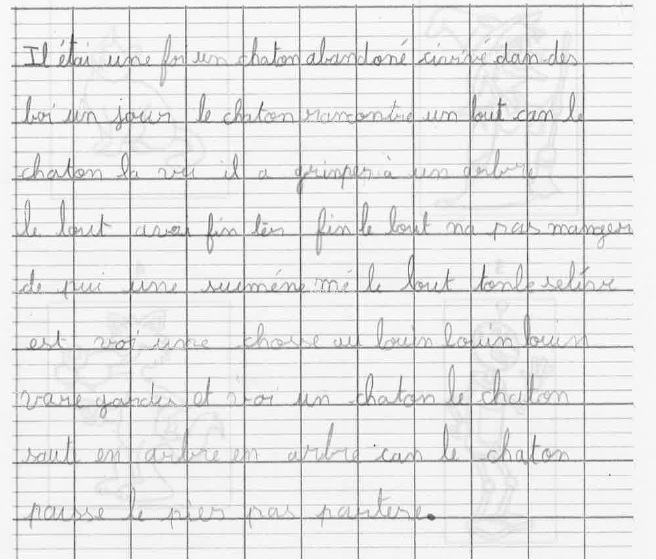 Il étai une foi un chaton abandoné civivé dan des
boi un jour le chaton rancontre un lout can le
chaton la vu il a grimper à un arbre
le lout avai fin tèr fin le lout na pas manger
de pui une sueméne mé le lout tonbe selévre
est voi une chosse au louin louin louin
va re garder et voi un chaton le chaton
saute en arbre en arbre can le chaton
pausse le pier pas partere.